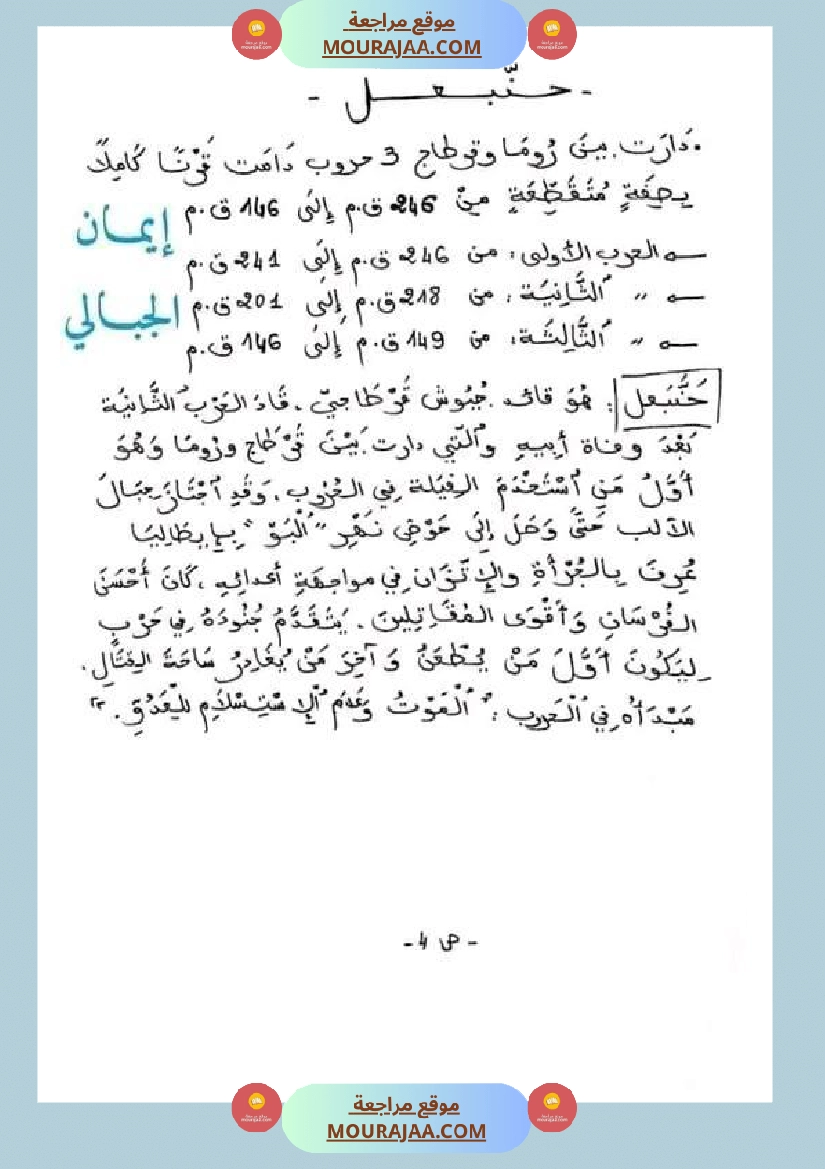 موقع مراجعة
MOURAJAA.COM
- حنّبعل -
• دَارَت بينَ رُومَا وقرطاج 3 حروب دَامَت قَرْنًا كَامِلًا
بِصِفَةٍ مُتَقَطِّعَةٍ مِنْ 246 ق.م إِلَى 146 ق.م
إيمان
الحرب الأولى: من 246 ق.م إِلَى 241 ق.م
" الثَّانِيَة: من 218 ق.م إِلى 201 ق.م
الجبالي
" الثَّالِثَة: من 149 ق.م إِلَى 146 ق.م
حَنَّبَعل : هُوَ قائد جُيُوش قَرْطَاجِيّ. قَادَ الحَرْبَ الثَّانِيَةَ
بَعْدَ وفاة أَبِيهِ والّتي دارت بَيْنَ قَرْطَاج ورُومَا وَهُوَ
أَوَّلُ مَنِ اسْتَخْدَمَ الفِيَلة فِي الحُرُوب. وَقَدِ اجْتَازَ جِبَالَ
الألب حَتَّى وَصَلَ إِلَى حَوْضِ نَهْرِ "الْبَوْ" بِإِيطَالِيَا
عُرِفَ بِالجُرْأَةِ والاِتِّزَان فِي مواجهَةِ أعدائِهِ. كَانَ أَحْسَنَ
الفُرْسَانِ وَأَقْوَى المُقَاتِلِينَ. يَتَقَدَّمُ جُنُودَهُ فِي حَرْبٍ
لِيَكُونَ أَوَّلَ مَنْ يُطْعَنُ وَآخِرَ مَنْ يُغَادِرُ سَاحَةَ القِتَالِ.
مَبْدَأُهُ فِي الْحَرب : " الْمَوْتُ وَعَدَمُ الاِسْتِسْلَامِ لِلْعَدُوِّ. "
- ص 4 -
موقع مراجعة
MOURAJAA.COM